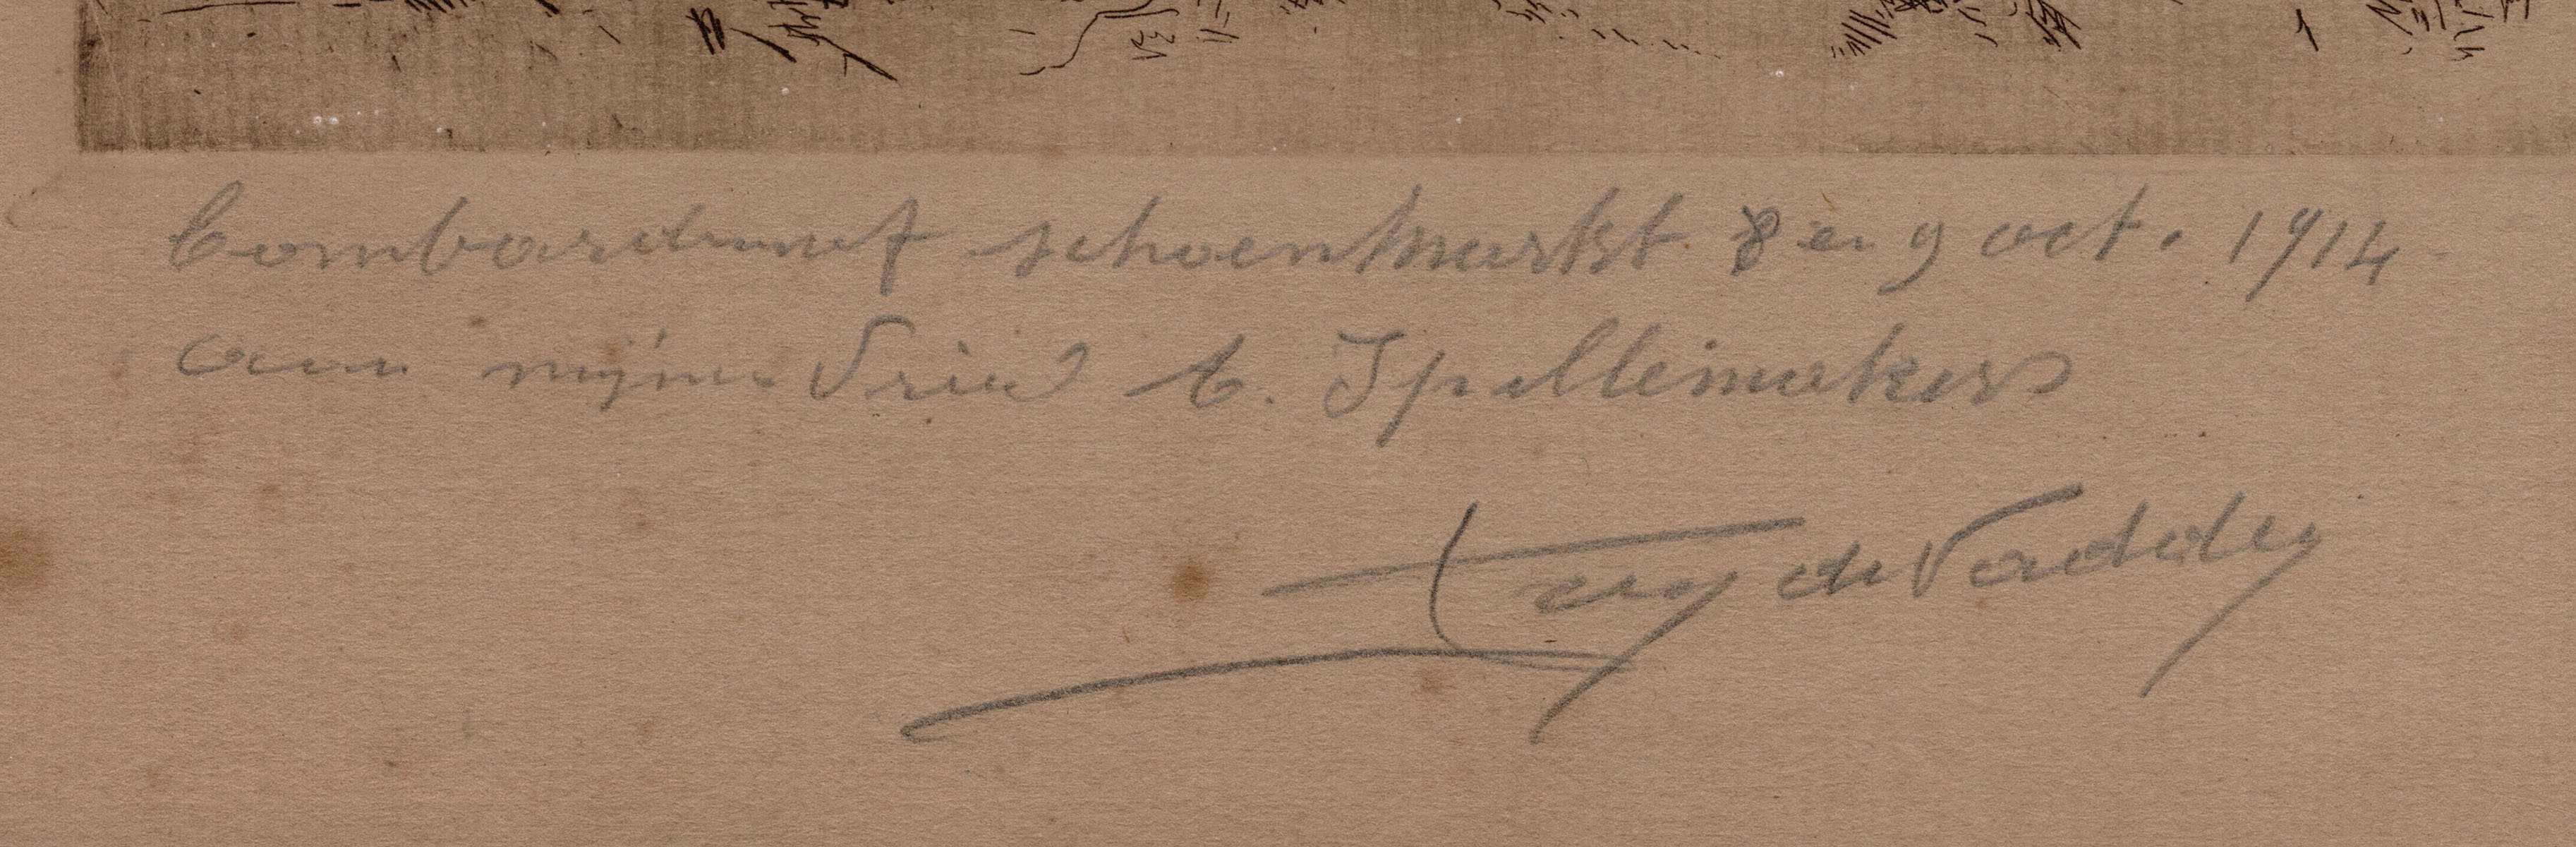 bombardement schoenmarkt 8 en 9 oct. 1914
aan mijne Vriend Spellemakers
de Vadder